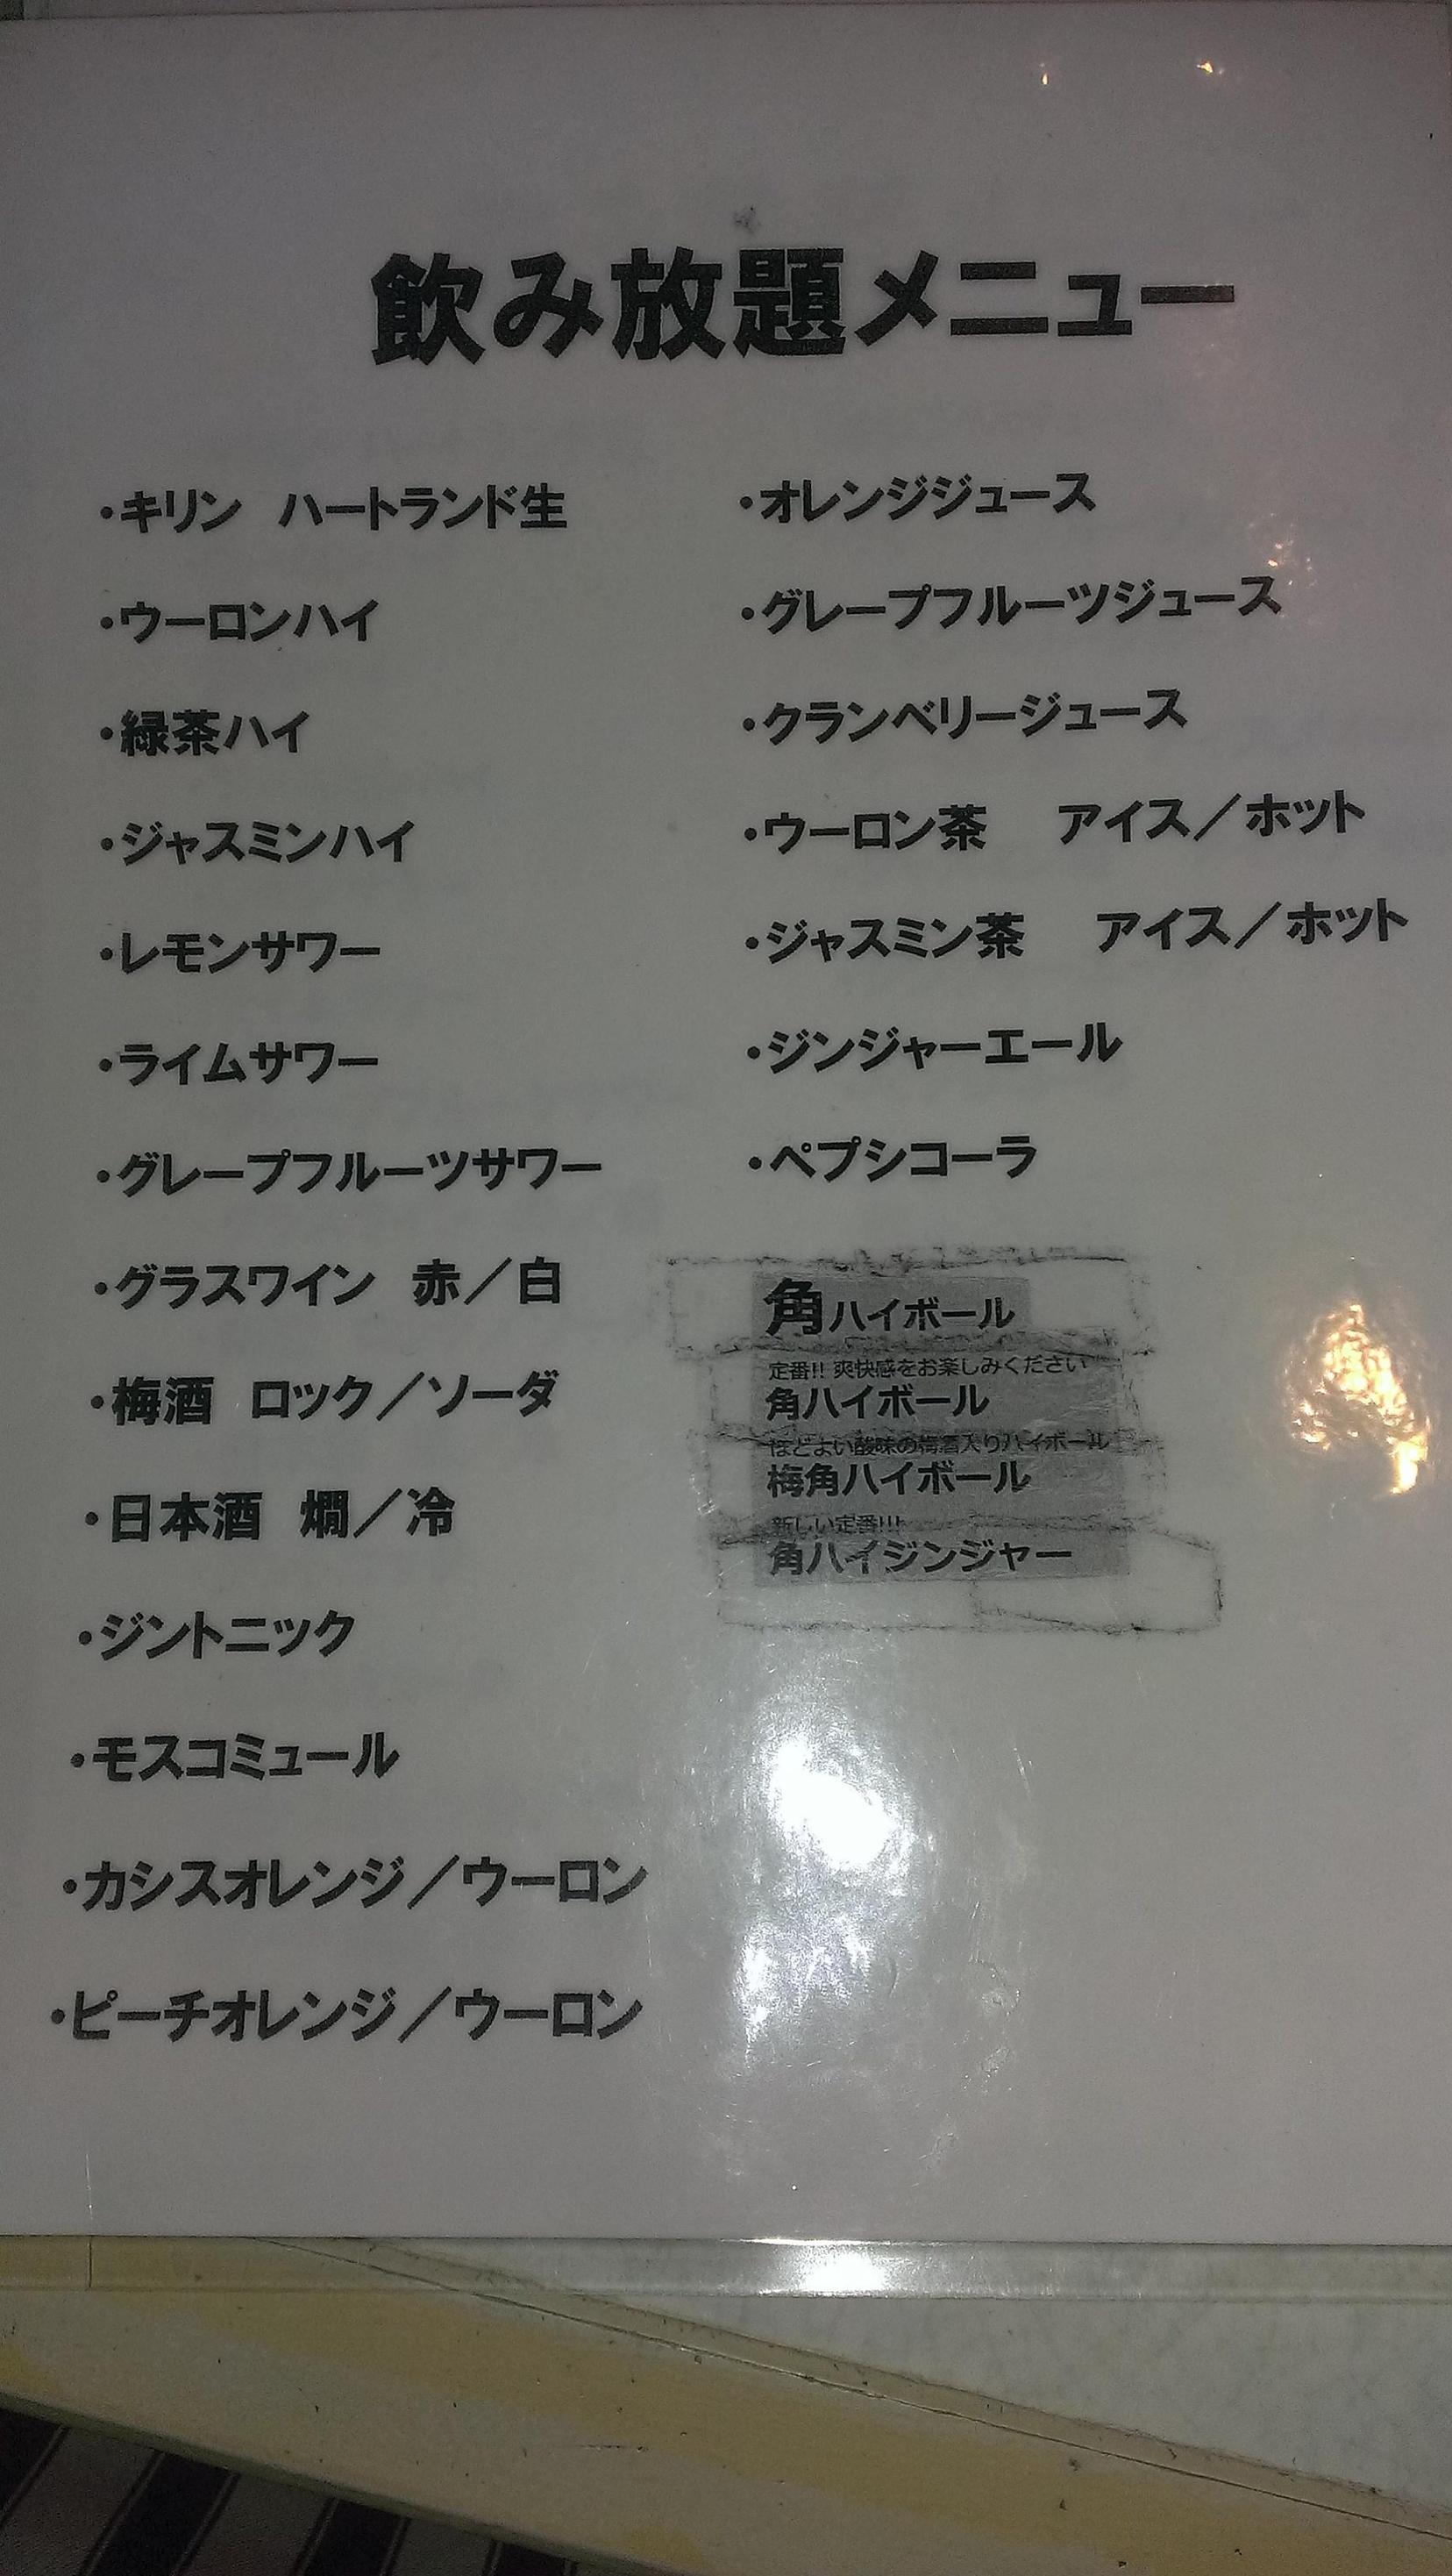 飲み放題メニュー
・キリン ハートランド生
・ウーロンハイ
・緑茶ハイ
・ジャスミンハイ
・レモンサワー
・ライムサワー
・グレープフルーツサワー
・グラスワイン 赤／白
・梅酒 ロック／ソーダ
・日本酒 燗／冷
・ジントニック
・モスコミュール
・カシスオレンジ／ウーロン
・ピーチオレンジ／ウーロン
・オレンジジュース
・グレープフルーツジュース
・クランベリージュース
・ウーロン茶 アイス／ホット
・ジャスミン茶 アイス／ホット
・ジンジャーエール
・ペプシコーラ
角ハイボール
定番!! 爽快感をお楽しみください
角ハイボール
ほどよい酸味の梅酒入りハイボール
梅角ハイボール
新しい定番!!!
角ハイジンジャー